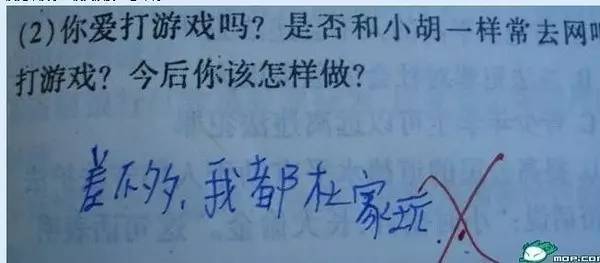 (2)你爱打游戏吗？是否和小胡一样常去网吧
打游戏？今后你该怎样做？
差不多，我都在家玩.
MOP.COM